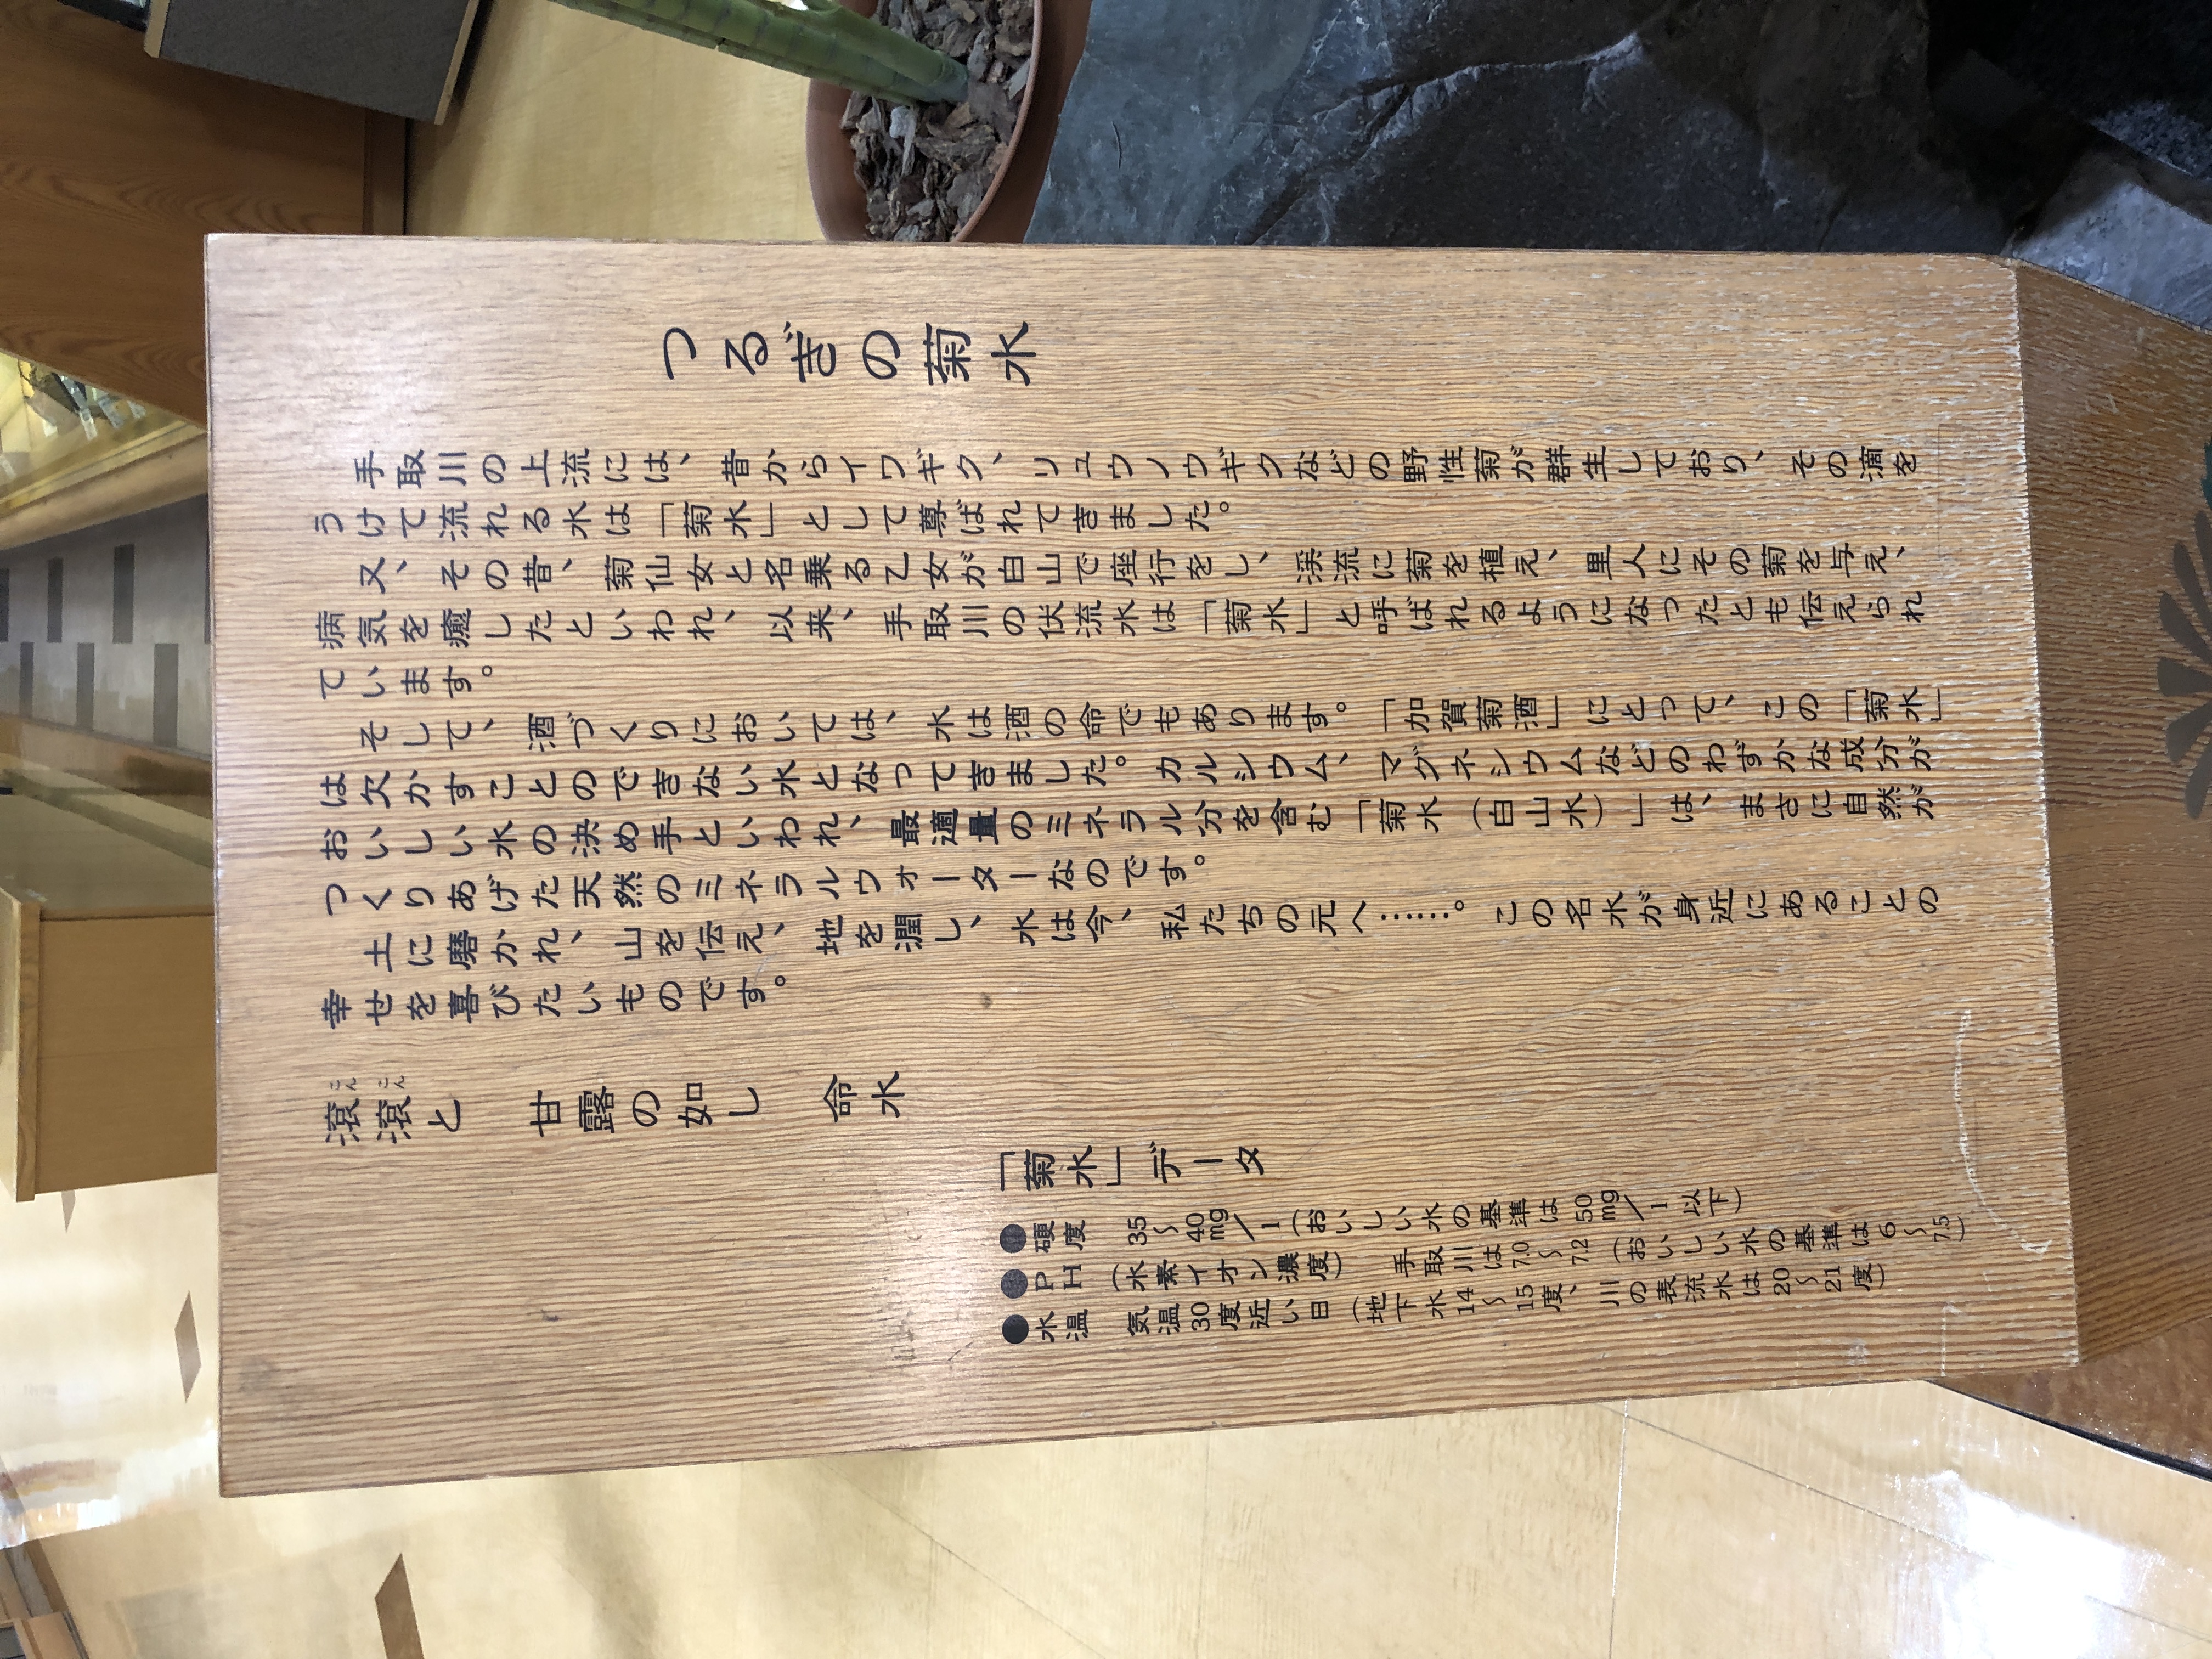 つるぎの菊水
手取川の上流には、昔からイワギク、リュウノウギクなどの野性菊が群生しており、その滴を
うけて流れる水は「菊水」として尊ばれてきました。
又、その昔、菊仙女と名乗る乙女が白山で座行をし、渓流に菊を植え、里人にその菊を与え、
病気を癒したといわれ、以来、手取川の伏流水は「菊水」と呼ばれるようになったとも伝えられ
ています。
そして、酒づくりにおいては、水は酒の命でもあります。「加賀菊酒」にとって、この「菊水」
は欠かすことのできない水となってきました。カルシウム、マグネシウムなどのわずかな成分が
おいしい水の決め手といわれ、最適量のミネラル分を含む「菊水（白山水）」は、まさに自然が
つくりあげた天然のミネラルウォーターなのです。
土に磨かれ、山を伝え、地を潤し、水は今、私たちの元へ……。この名水が身近にあることの
幸せを喜びたいものです。
滾滾と 甘露の如し 命水
こん こん
「菊水」データ
●硬度 35～40mg／l（おいしい水の基準は50mg／l以下）
●PH（水素イオン濃度） 手取川は7.0～7.2（おいしい水の基準は6～7.5）
●水温 気温30度近い日（地下水14～15度、川の表流水は20～21度）